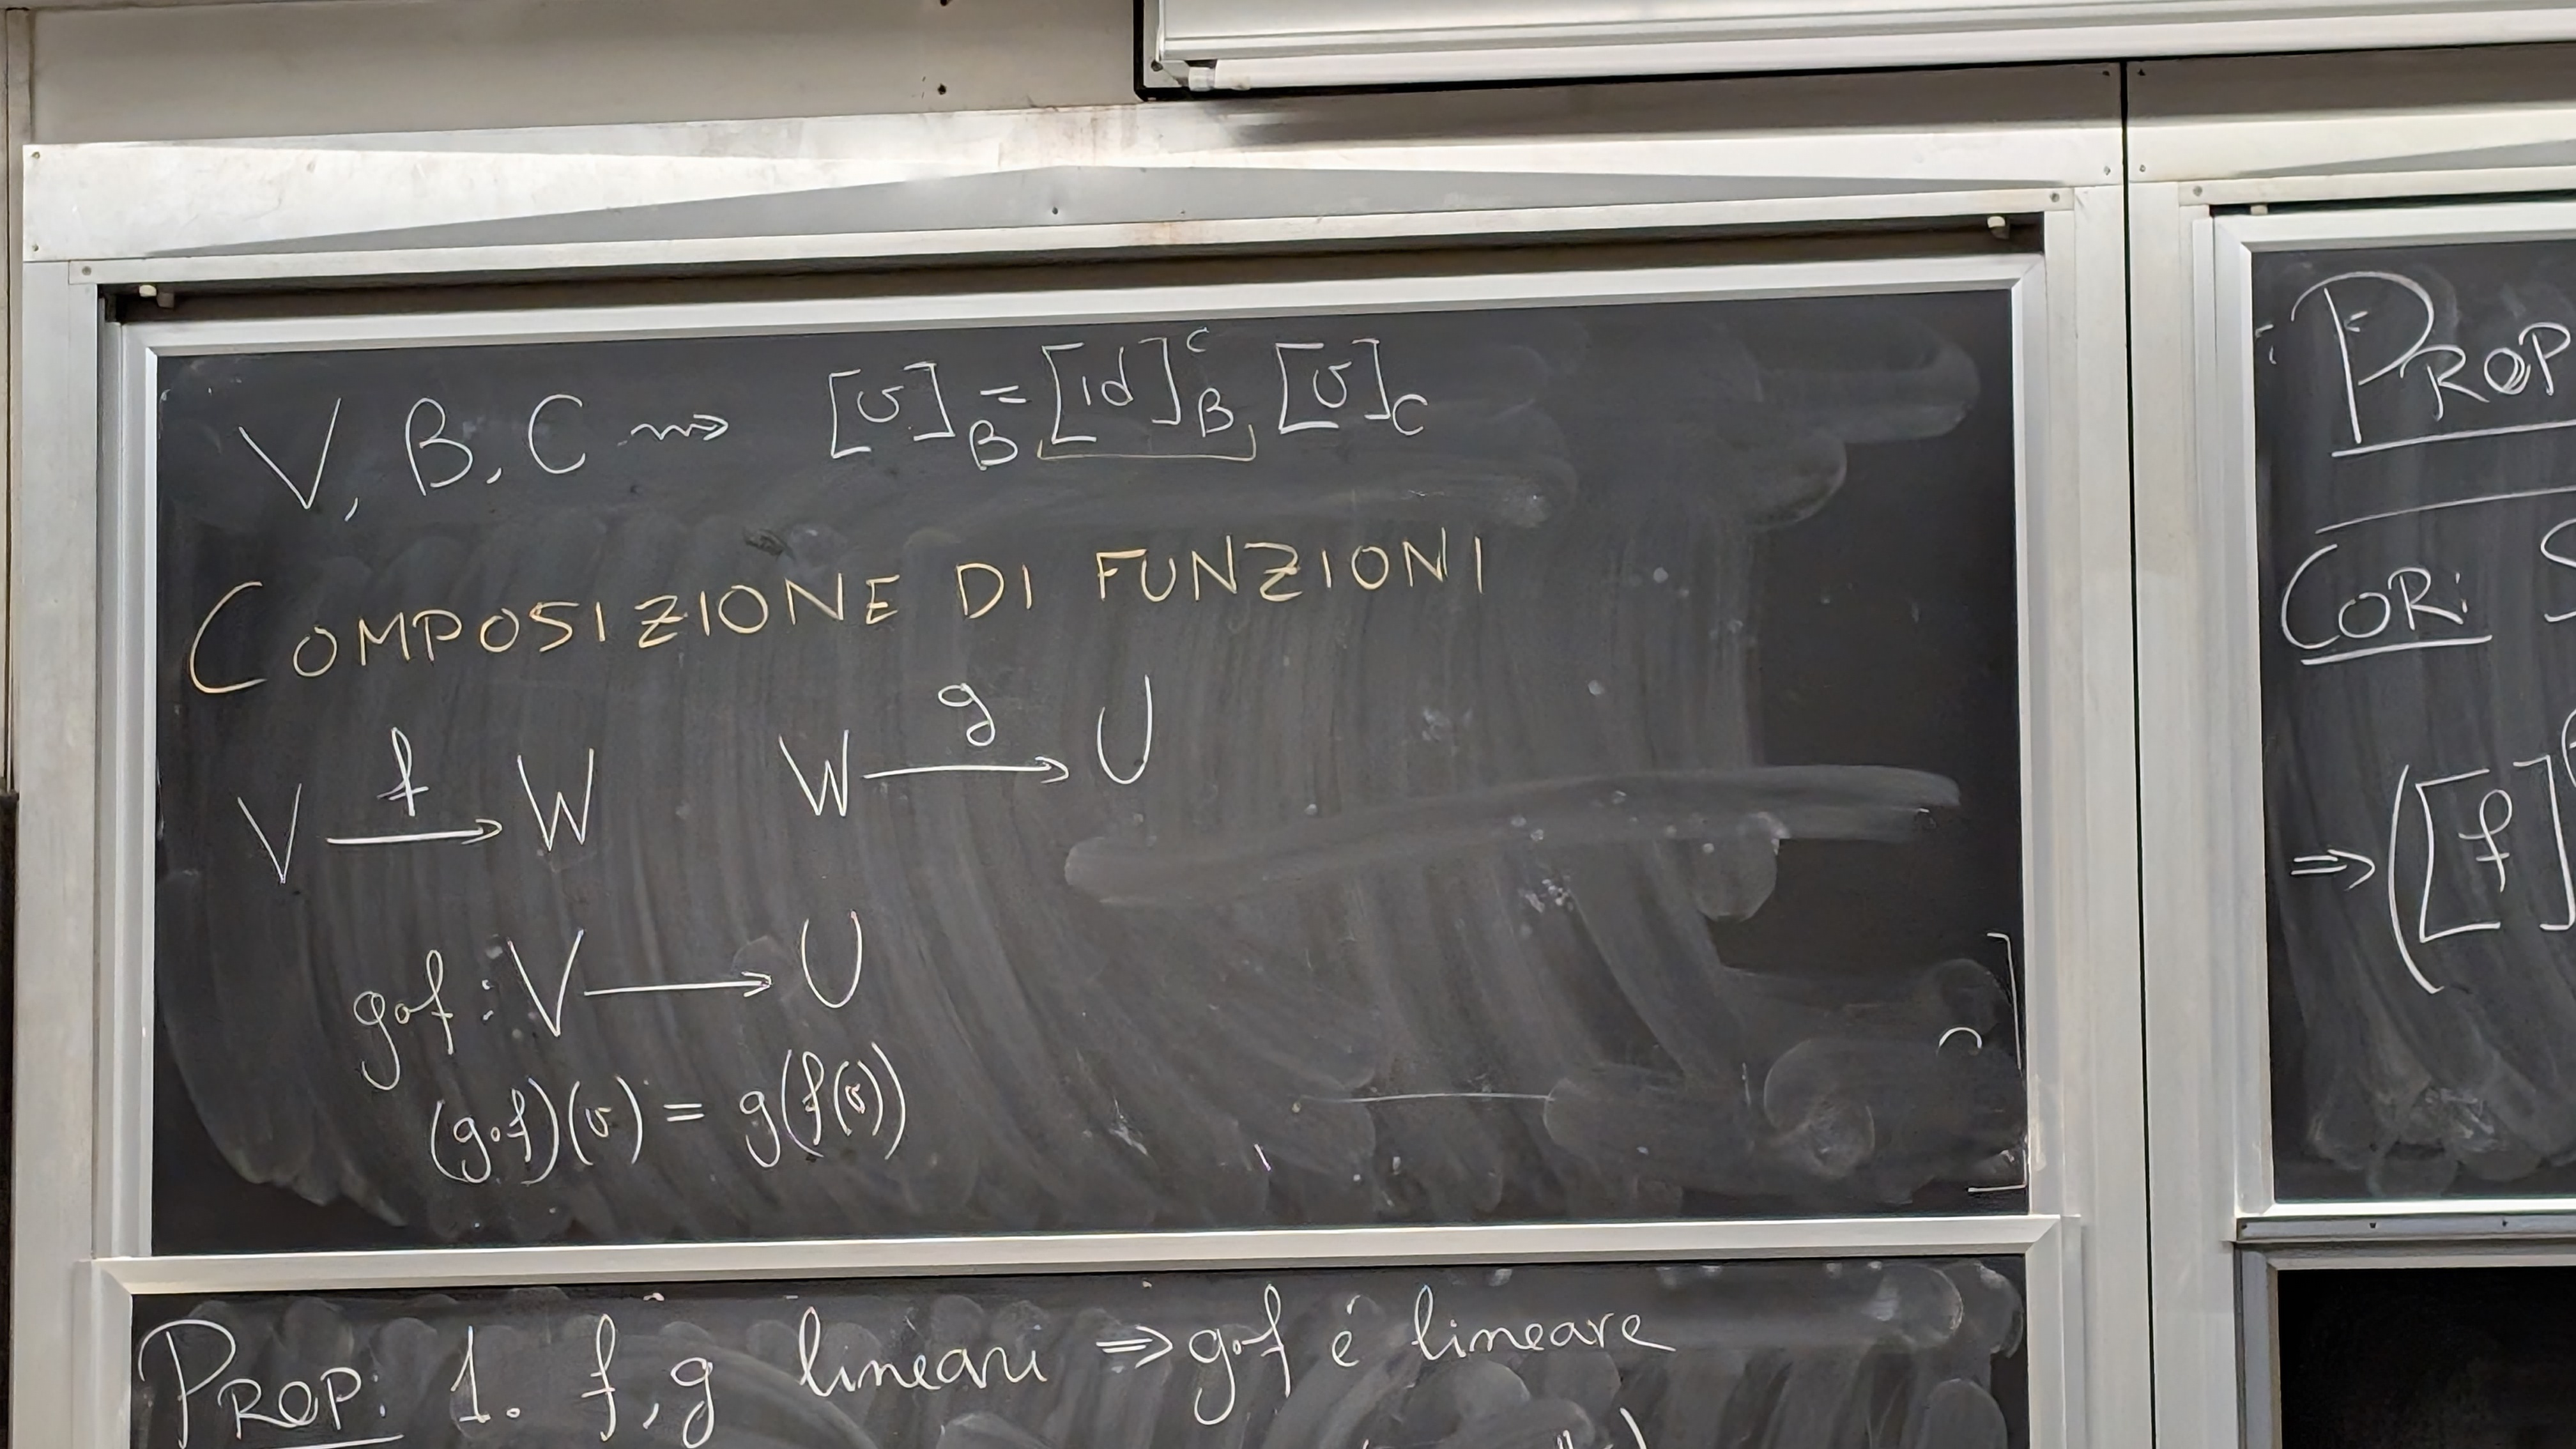 V, B, C ⇝ [v]_B = [id]^C_B [v]_C
COMPOSIZIONE DI FUNZIONI
V —f→ W   W —g→ U
g∘f : V ⟶ U
(g∘f)(v) = g(f(v))
PROP: 1. f, g lineari ⇒ g∘f é lineare
PROP
COR: S
⇒ ([f]